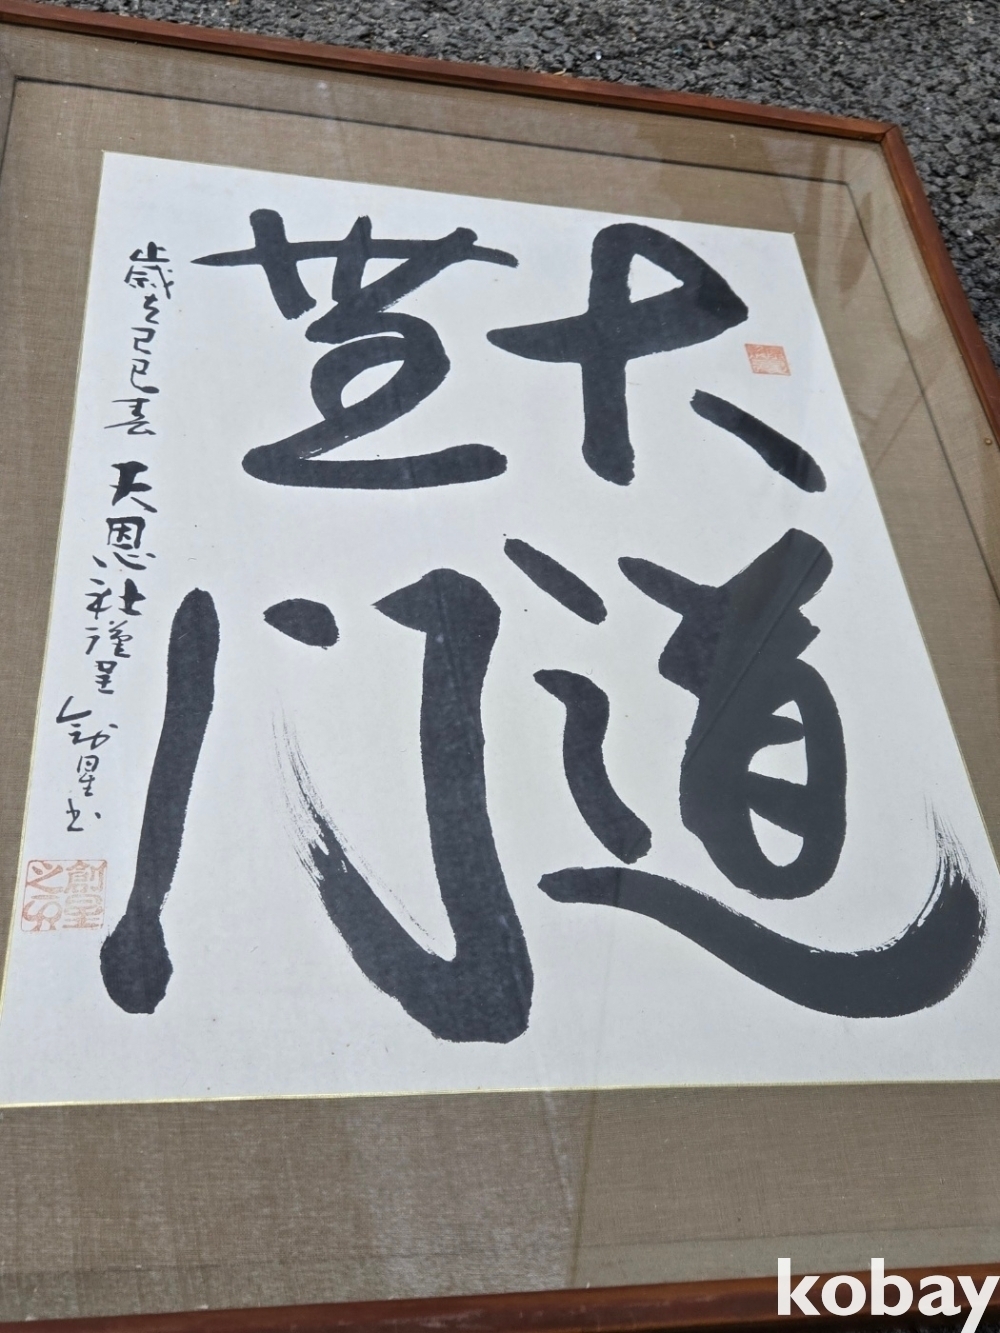 大道
無門
歲在己巳春 天恩社謹呈 創星書
創星之印
kobay